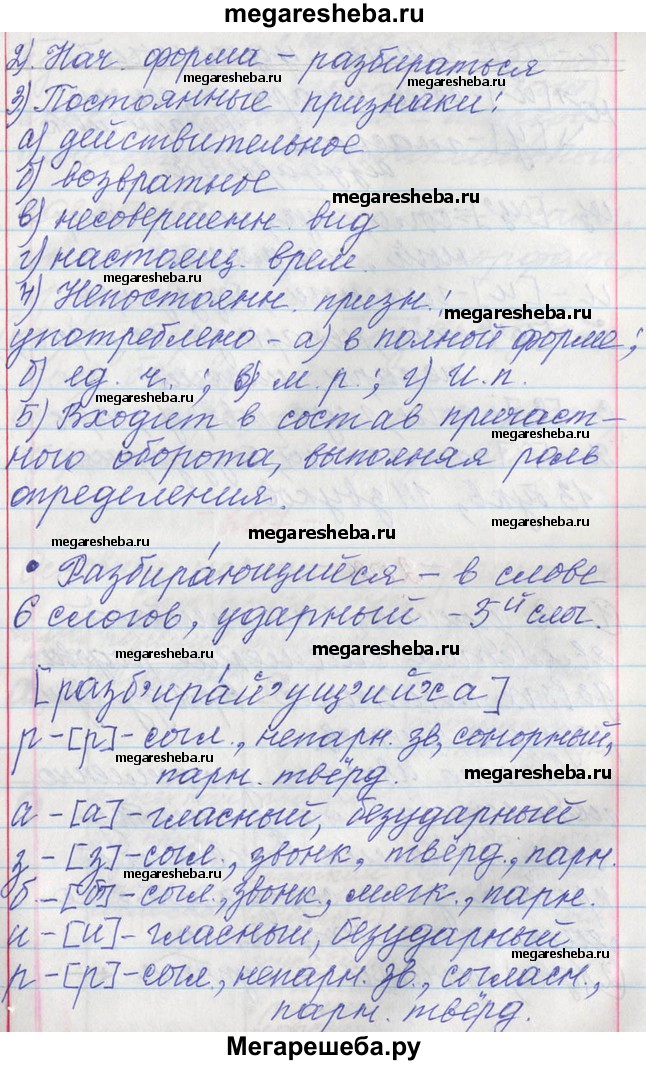 megaresheba.ru
2) Нач. форма – разбираться
megaresheba.ru
megaresheba.ru
3) Постоянные признаки:
megaresheba.ru
а) действительное
б) возвратное
megaresheba.ru
в) несовершенн. вид
г) настоящ. врем.
megaresheba.ru
4) Непостоянн. призн.;
megaresheba.ru
употреблено – а) в полной форме;
б) ед. ч.; в) м. р.; г) И. п.
megaresheba.ru
5) Входит в состав причаст-
megaresheba.ru
ного оборота, выполняя роль
определения.
megaresheba.ru
megaresheba.ru
megaresheba.ru
• Разбира́ющийся – в слове
6 слогов, ударный – 3й слог.
megaresheba.ru
megaresheba.ru
[разб'ира́й'ущ'ий'с'а]
р – [р] – согл., непарн. зв, сонорный,
парн. твёрд.
megaresheba.ru
а – [а] – гласный, безударный
з – [з] – согл., звонк., твёрд., парн.
megaresheba.ru
б – [б] – согл., звонк., мягк., парн.
и – [и] – гласный, безударный
megaresheba.ru
р – [р] – согл., непарн. зв., согласн.,
парн. твёрд.
Мегарешеба.ру